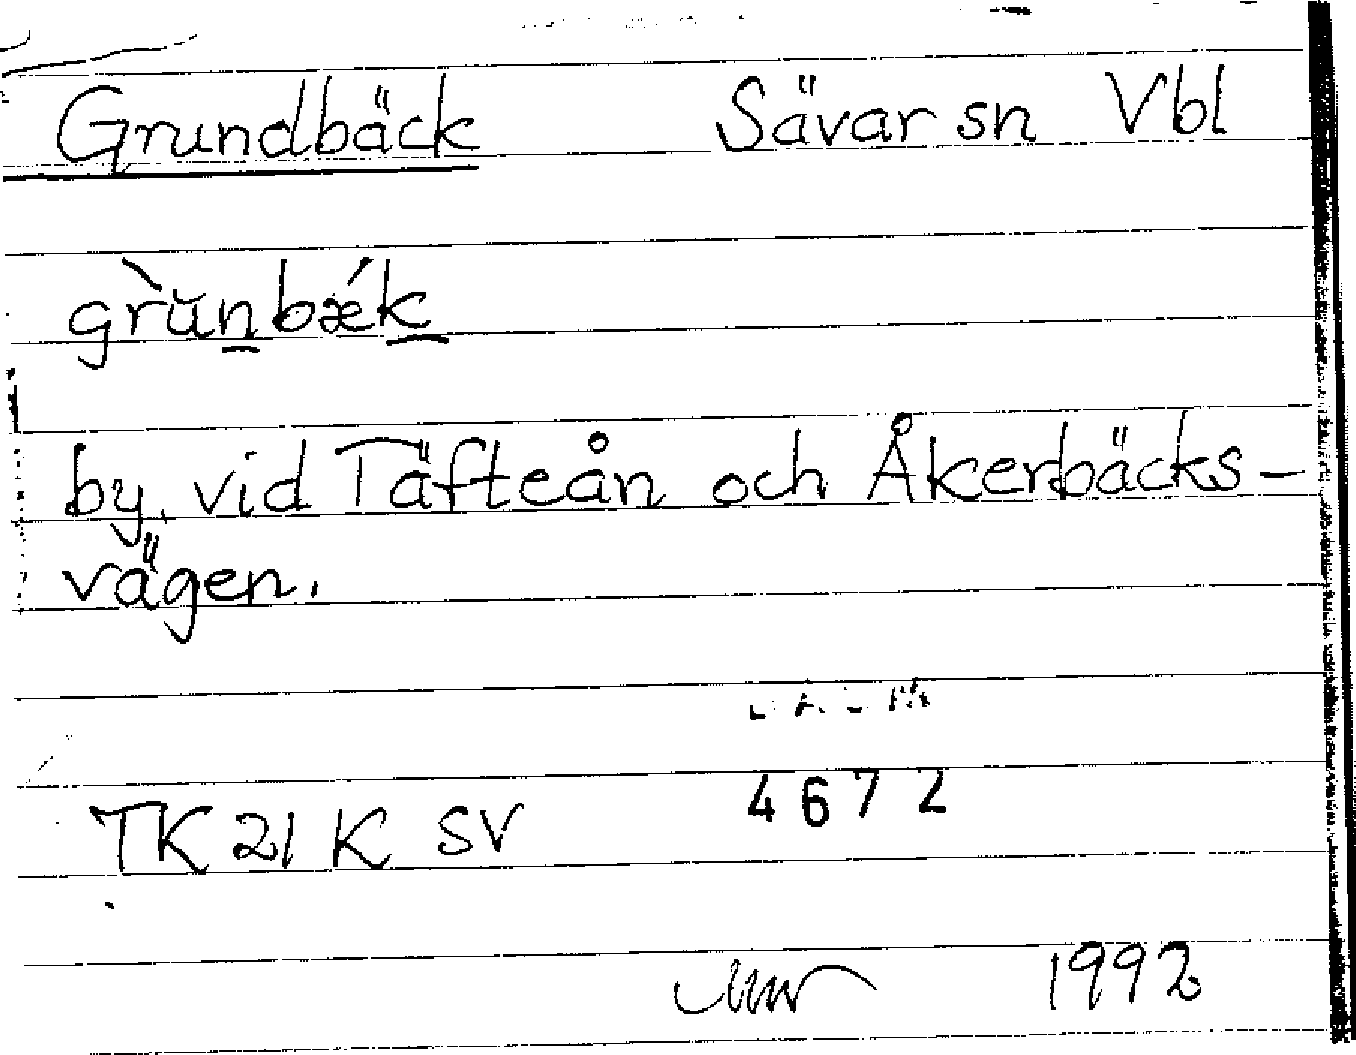 Grundbäck Sävar sn Vbl
grùn̲bǽk̲
by, vid Täfteån och Åkerbäcks-
vägen.
4672
TK 21 K SV
1992